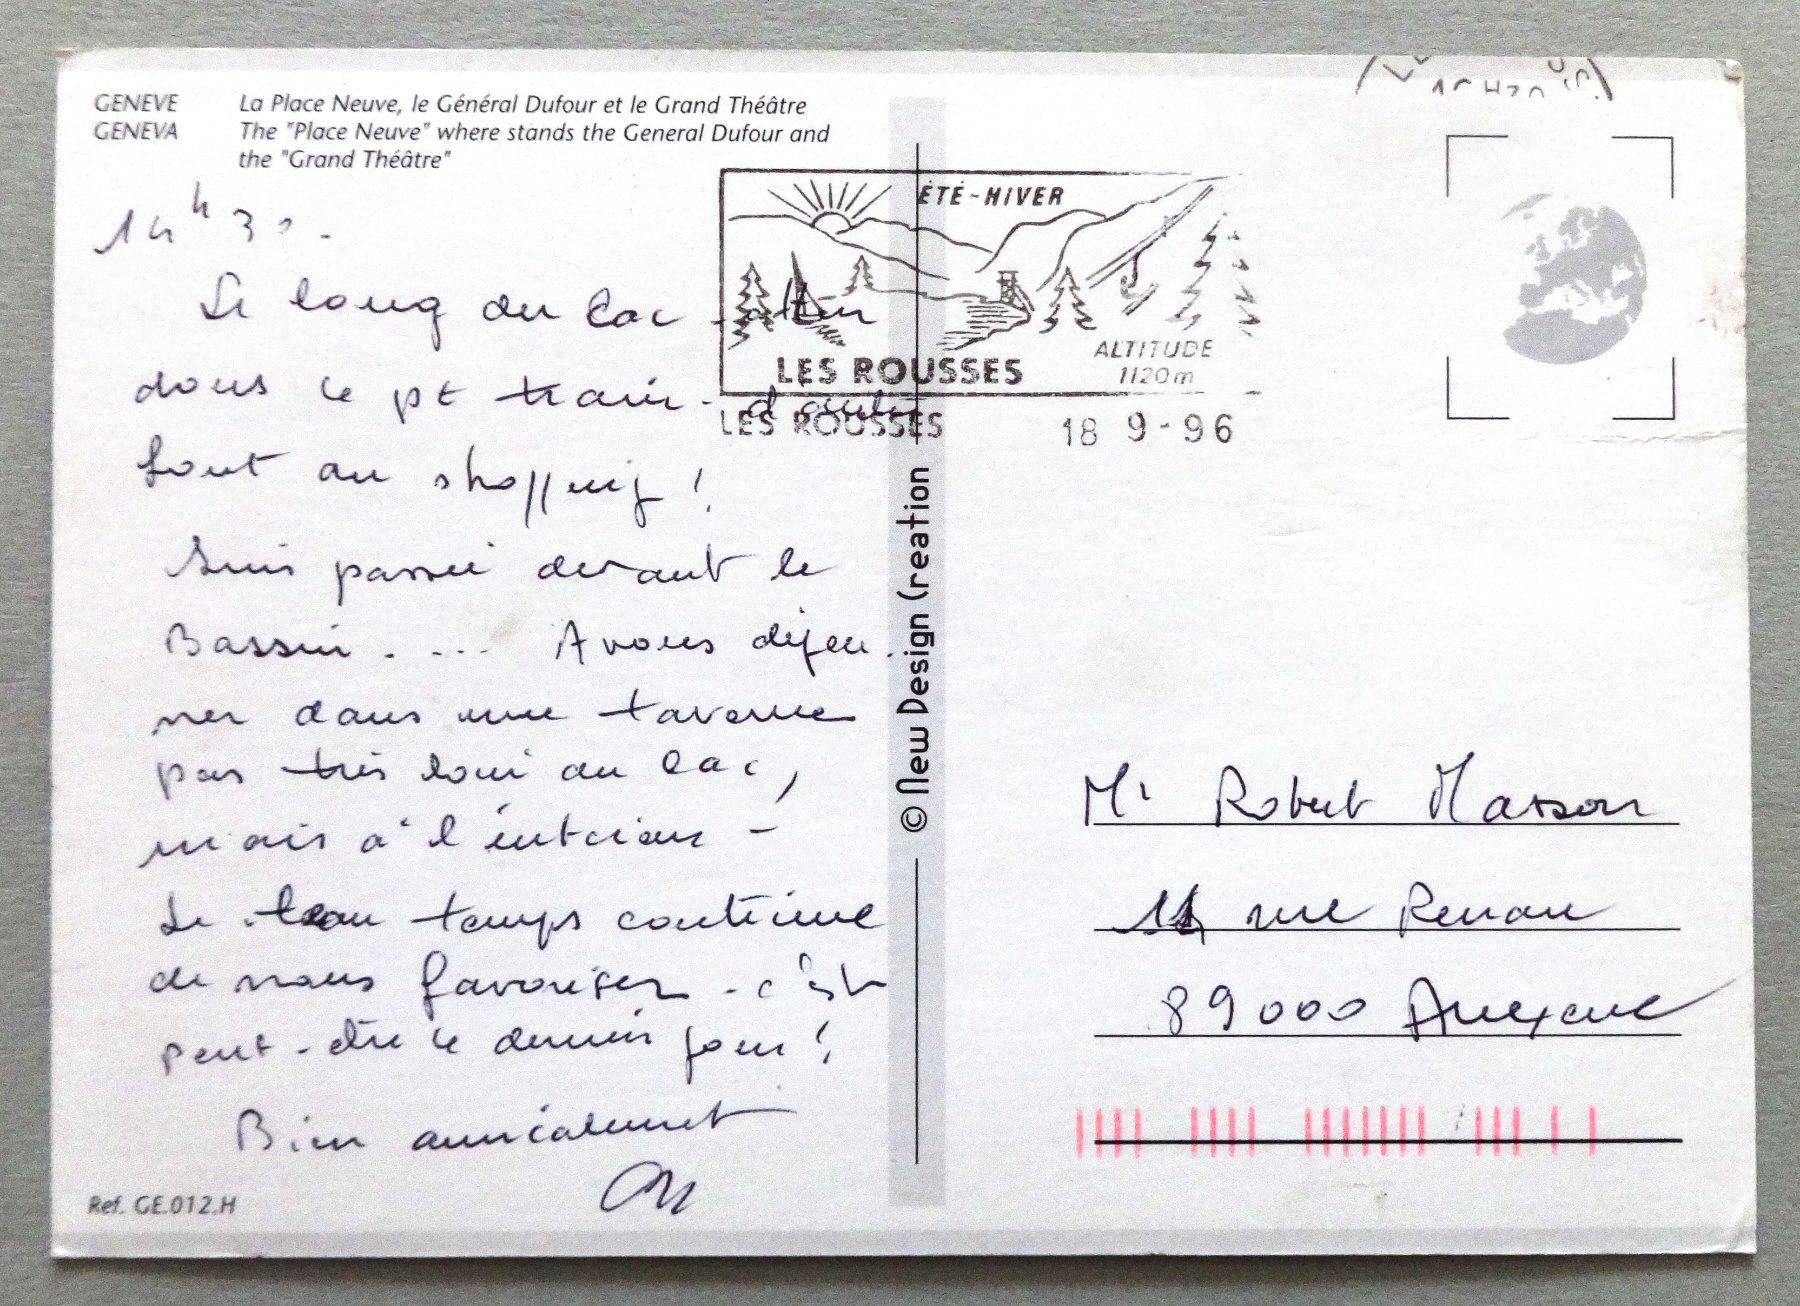 GENEVE La Place Neuve, le Général Dufour et le Grand Théâtre
GENEVA The "Place Neuve" where stands the General Dufour and
the "Grand Théâtre"
14h30.
Le long du Lac
dans le pt train - d'autres
sont au shopping !
Suis passée devant le
Bassin. ... Avons déjeu
ner dans une taverne
pas très loin du lac,
mais à l'intérieur -
Le temps continue
de nous favoriser - c'est
peut-être le dernier jour !
Bien amicalement
Ref. GE.012.H
ÉTÉ-HIVER
LES ROUSSES
ALTITUDE
1120m
LES ROUSSES 18 9-96
© New Design Creation
Mr Robert Masson
11 rue Renan
89000 Auxerre